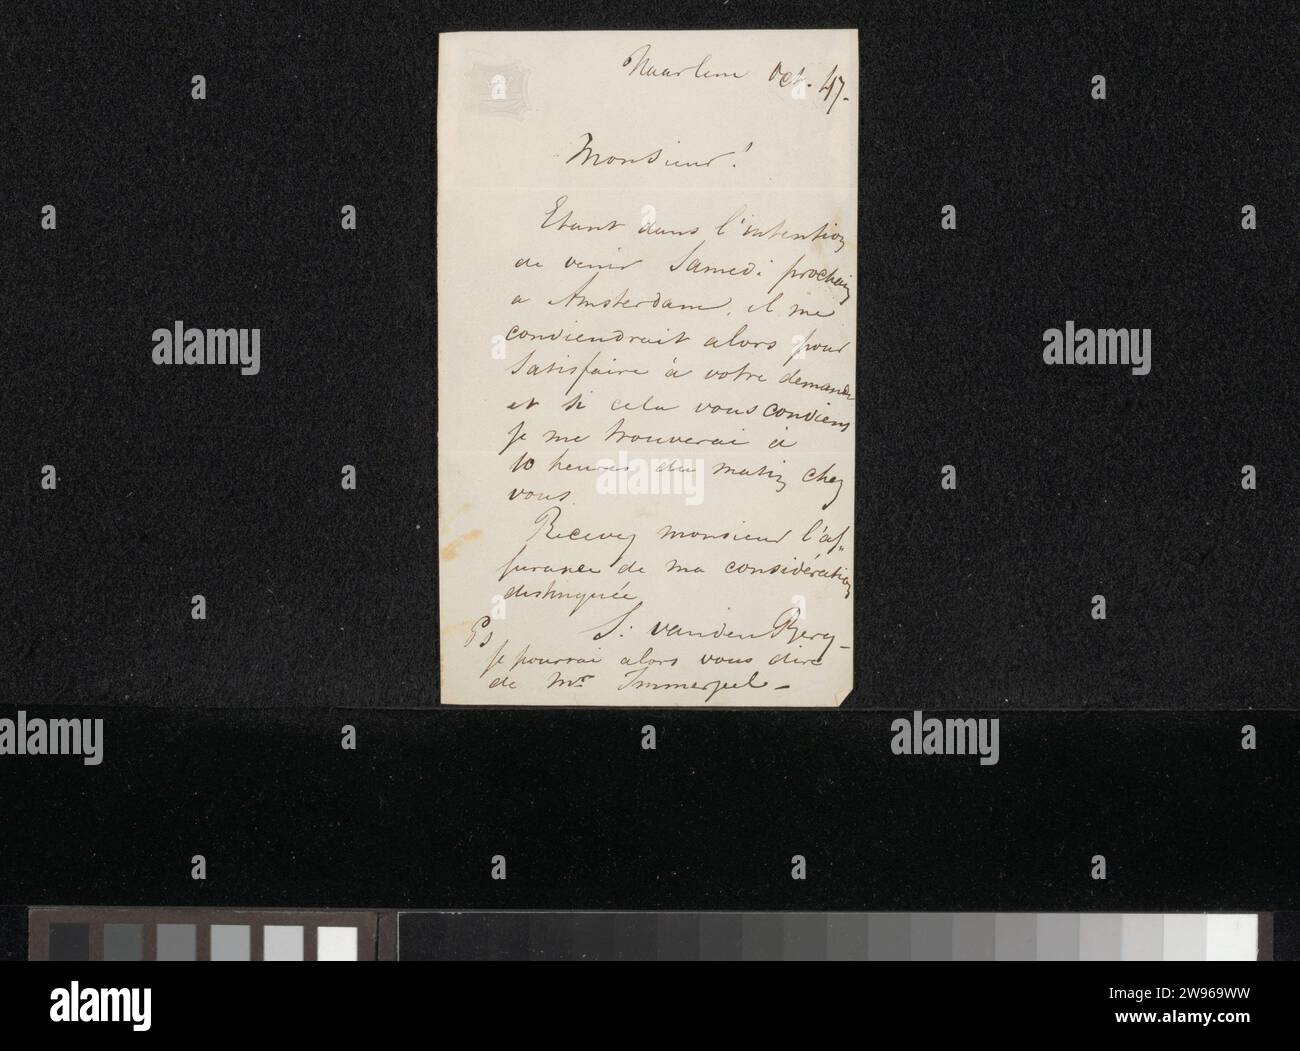 Haarlem Oct. 47.
Monsieur!
Etant dans l'intention
de venir Samedi prochain
a Amsterdam, il me
conviendrait alors pour
satisfaire à votre demande
et si cela vous conviens
je me trouverai à
10 heures du matin chez
vous.
Recevez monsieur l'as=
surance de ma considération
distinguée
S: van den Berg
Ps
je pourrai alors vous dire
de Mr Immerzeel
alamy
Image ID: 2W969WW
www.alamy.com